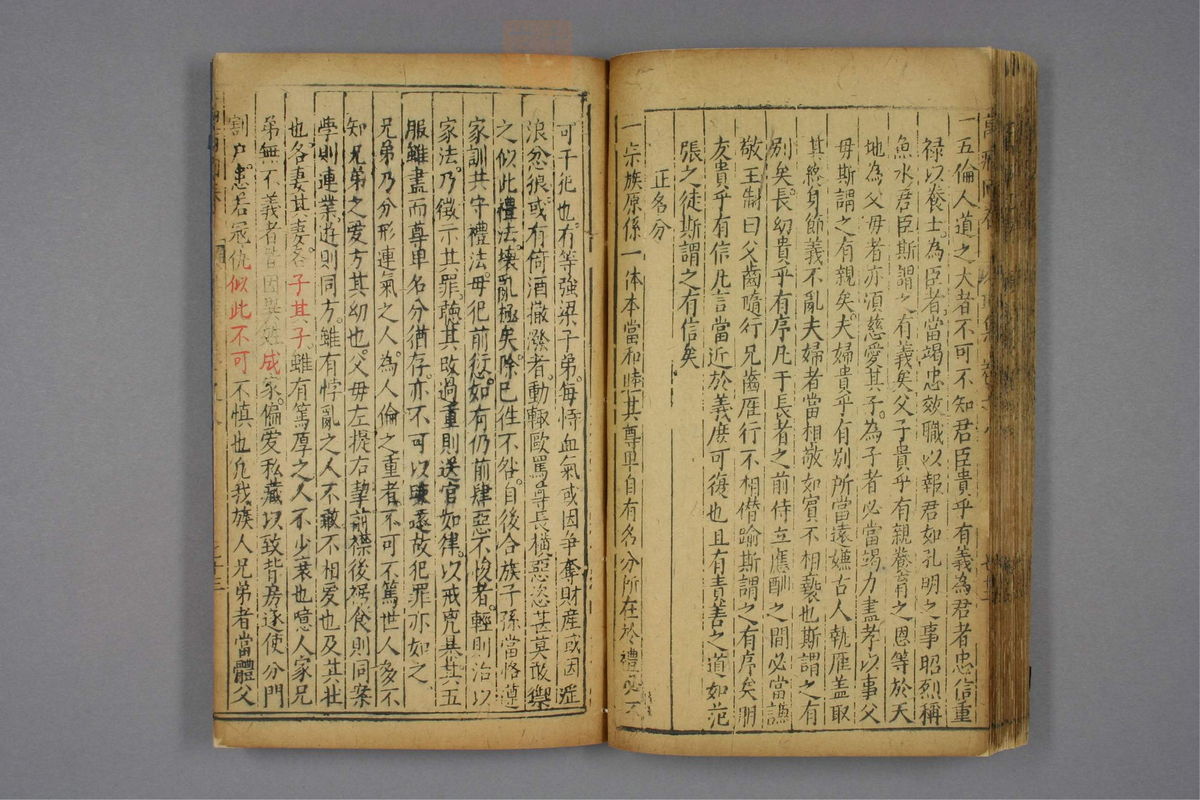 一五倫人道之大者不可不知君臣貴乎有義為君者忠信重
祿以養士為臣者當竭忠效職以報君如孔明之事昭烈稱
魚水君臣斯謂之有義矣父子貴乎有親養育之恩等於天
地為父母者亦須慈愛其子為子者必當竭力盡孝以事父
母斯謂之有親矣夫婦貴乎有別所當遠嫌古人執雁蓋取
其終身節義不亂夫婦者當相敬如賓不相褻也斯謂之有
別矣長幼貴乎有序凡于長者之前侍立應酬之間必當謙
敬王制曰父齒隨行兄齒雁行不相僭踰斯謂之有序矣朋
友貴乎有信凡言當近於義庶可復也且有責善之道如范
張之徒斯謂之有信矣
正名分
一宗族原係一体本當和睦其尊卑自有名分所在於禮必不
可干犯也有等強梁子弟每恃血氣或因爭奪財産或因
浪忿狠或有倚酒撒潑者動輒歐罵尊長橫惡恣甚莫敢禦
之似此禮法壞亂極矣除已徃不咎自後合族子孫當恪遵
家訓共守禮法毋犯前愆如有仍前肆惡不悛者輕則治以
家法乃徵示其罪聽其改過重則送官如律以戒兇暴其五
服雖盡而尊卑名分猶存亦不可以疎遠故犯罪亦如之
兄弟乃分形連氣之人為人倫之重者不可不篤世人多不
知兄弟之愛方其幼也父母左提右挈前襟後裾食則同案
學則連業遊則同方雖有悖亂之人不敢不相愛也及其壯
也各妻其妻各子其子雖有篤厚之人不少衰也噫人家兄
弟無不義者皆因異姓成家偏愛私藏以致背房逐使分門
割户患若冦仇似此不可不慎也凡我族人兄弟者當體父